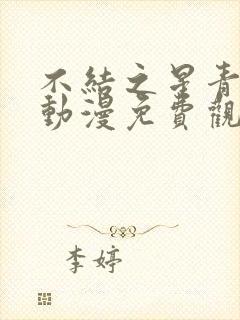 不結之星青
動漫免費觀
李婷